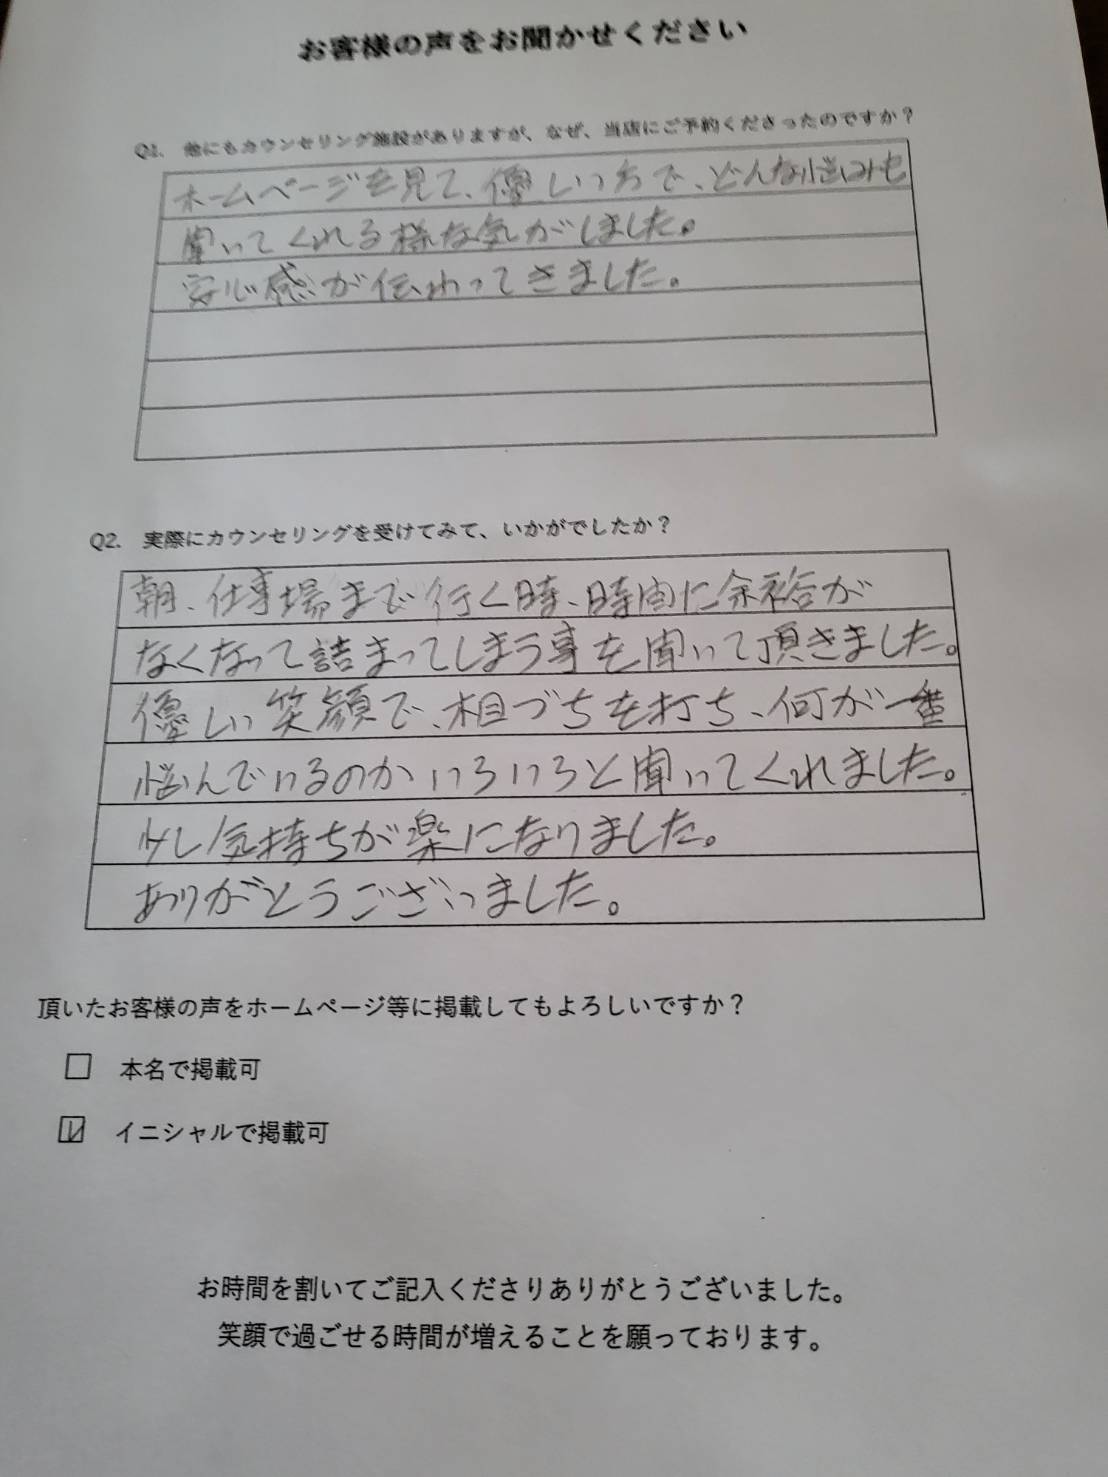 お客様の声をお聞かせください
Q1. 他にもカウンセリング施設がありますが、なぜ、当店にご予約くださったのですか？
ホームページを見て、優しい方で、どんな悩みも
聞いてくれる様な気がしました。
安心感が伝わってきました。
Q2. 実際にカウンセリングを受けてみて、いかがでしたか？
朝、仕事場まで行く時、時間に余裕が
なくなって詰まってしまう事を聞いて頂きました。
優しい笑顔で、相づちを打ち、何が一番
悩んでいるのかいろいろと聞いてくれました。
少し気持ちが楽になりました。
ありがとうございました。
頂いたお客様の声をホームページ等に掲載してもよろしいですか？
本名で掲載可
イニシャルで掲載可
お時間を割いてご記入くださりありがとうございました。
笑顔で過ごせる時間が増えることを願っております。